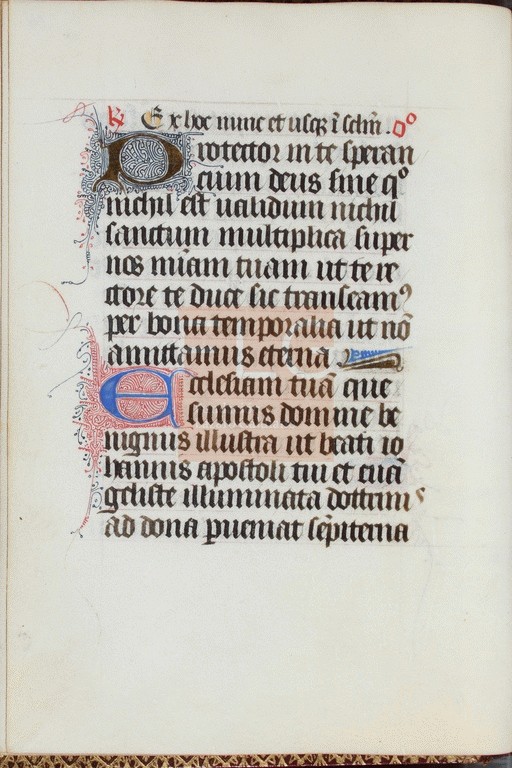 ℟ Ex hoc nunc et usqȝ ī sclm̄. Do᷒
Protector in te speran
cium deus sine qͦ
nichil est ualidum nichil
sanctum multiplica super
nos mīam tuam ut te re
ctore te duce sic transeamꝰ
per bona temporalia ut nō
amittamus eterna
Ecclesiam tuā que
sumus domine be
nignus illustra ut beati io
hannis apostoli tui et euā
geliste illuminata dottrinis
ad dona ꝑueniat sēpiterna